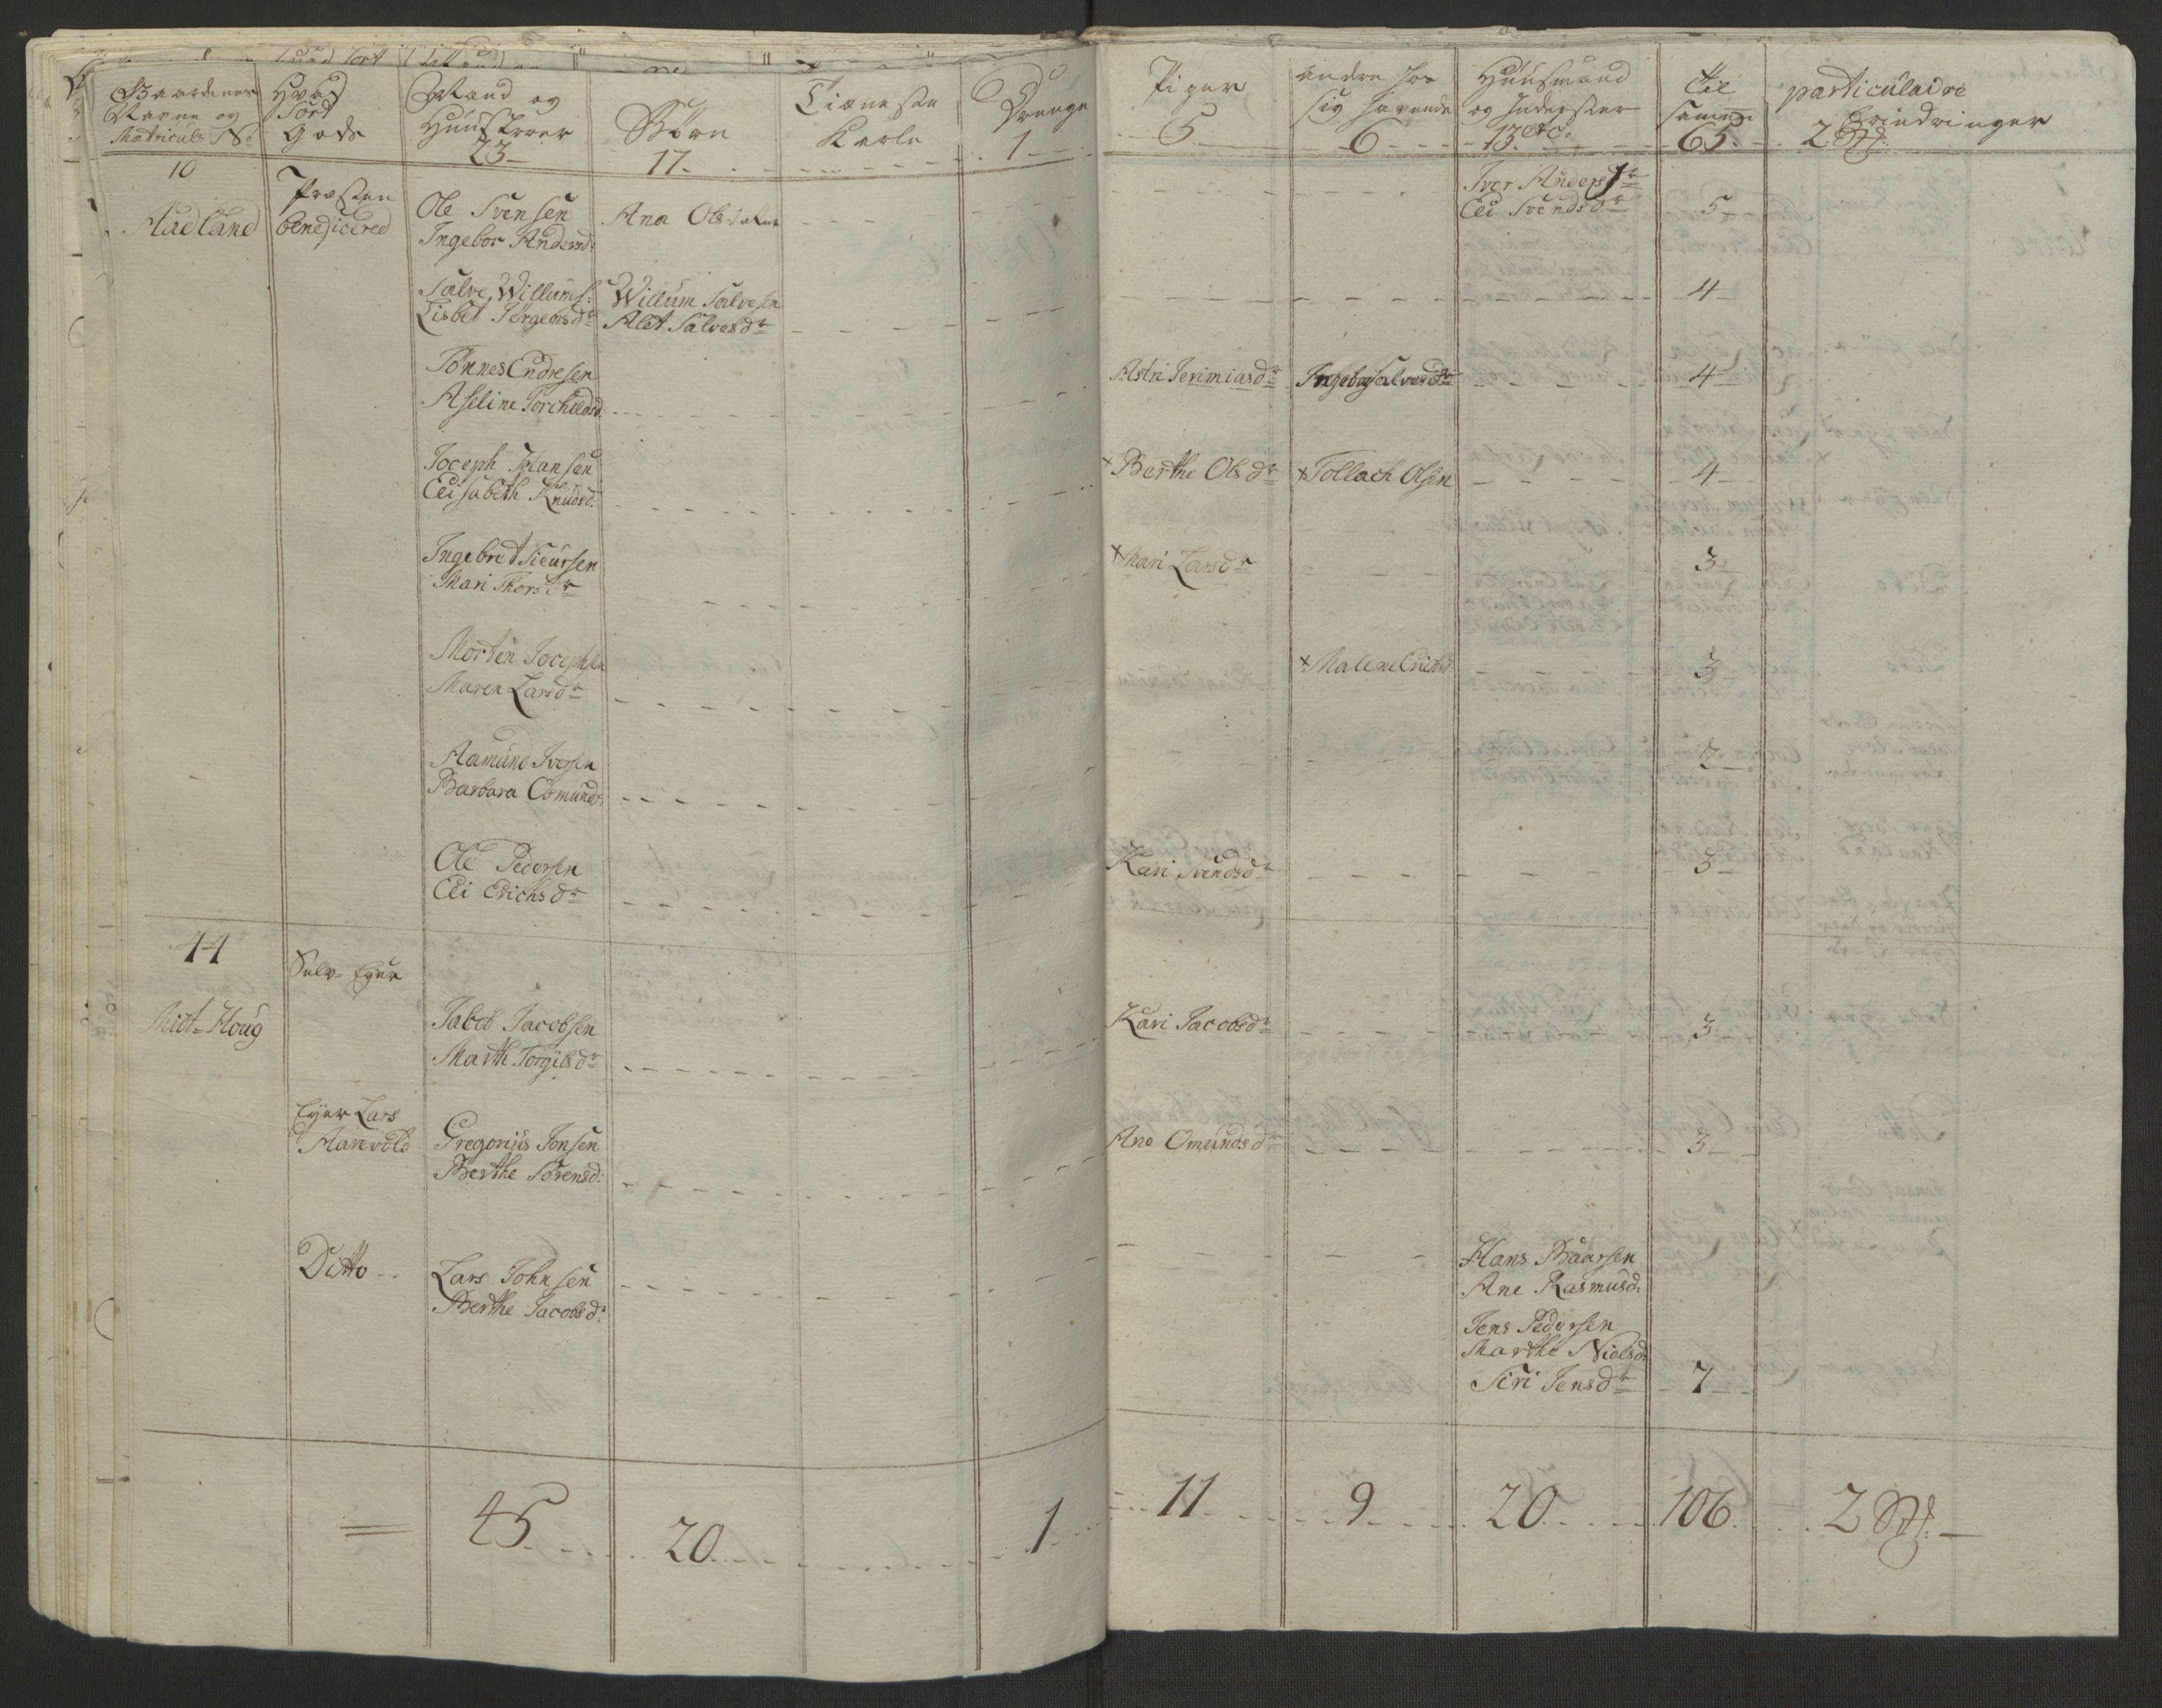 Gaardenes
Navne og
Matricul: No
Hvad
Sort
Gods
Mand og
Huustroer
23
Børn
17
Tieneste
Karle
Drenge
1
Piger
5
Andre hos
sig havende
6
Huusmænd
og Inderster
13 etc.
Til
samen
65
particulaire
Erindringer
2
10
Aadland
Præsten
beneficered
Ole Svensen
Ingebor Andersd:
Ana Olsdatter
Iver Anders
Eli Svendsdr
5
Salve Willums:
Lisbet Jørgensdr
Willum Salvesen
Alet Salvesdr
4
Tønnes Endresen
Aseline Torchildsd
Astri Jerimiasdr
Ingebor Salvesdr
4
Joceph Hansen
Elisabeth Knudsd:
+ Berthe Olsdr
+ Tollach Olsen
4
Ingebret Siversen
Mari Thorsdr
+ Mari Larsdr
3
Morten Jocephsen
Maren Larsdr
+ Malene Erichsd
3
Aamund Iversen
Barbara Omunds
2
Ole Pedersen
Eli Erichsdr
Kari Svendsdr
3
44
Midt-Houg
Selv-Eyer
Jacob Jacobsen
Marth Torgilsdr
Kari Jacobsdr
3
Eyer Lars
Aarevold
Gregorius Jonsen
Berthe Sørensd:
Ane Omundsdr
3
Ditto
Lars Johnsen
Berthe Jacobsd:
Hans Baarsen
Ane Rasmusd:
Jens Pedersen
Marthe Nielsd:
Siri Jensdr
7
45
20
1
11
9
20
106
2